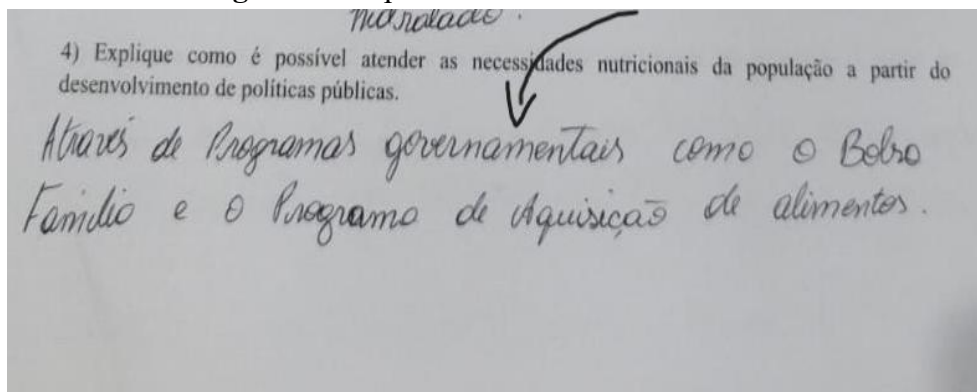 hidratado.
4) Explique como é possível atender as necessidades nutricionais da população a partir do
desenvolvimento de políticas públicas.
Através de Programas governamentais como o Bolsa
Família e o Programa de Aquisição de alimentos.